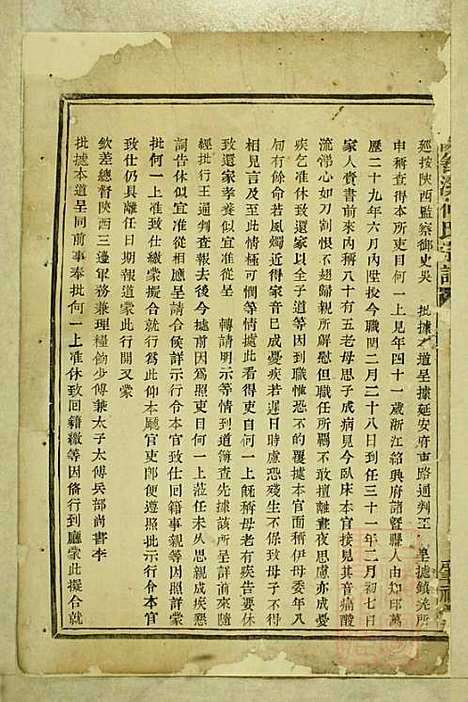 廵按陝西監察御史吴　批據本道呈據延安府東路通判王　呈據鎮羗所
申稱查得本所吏目何一上見年四十一歲浙江紹興府諸暨縣人由知印萬
歷二十九年六月內陞授今職閏二月二十八日到任三十一年二月初七日
家人賫書前來內稱八十有五老母思子成病見今臥床本官接見其音痛酸
流涕心如刀割恨不趐歸親所解慰但職任所羈不敢擅離晝夜思慮亦成憂
疾乞准休致還家以全子道等因到職惟恐不的覆據本官面稱伊母委年八
旬有餘命若風燭近得家音已成憂疾若遲日時慮恐殘生不保致母子不
相見言及至此情極可憫等情據此看得吏目何一上旣稱母老有疾告要休
致還家孝養似宜准從呈　轉請明示等情到道簿查先據該所呈詳前來隨
經批行王通判查報去後今據前因爲照吏目何一上蒞任未乆思親成疾懇
詞告休似宜准從擬合候詳示行令本官致仕回籍事親等因照詳蒙
批何一上准致仕繳蒙擬合就行爲此仰本廳官吏即便遵照批示行令本官
致仕仍具離任日期報道蒙此行間又蒙
欽差總督陝西三邊軍務兼理糧餉少傅兼太子太傅兵部尚書李
批據本道呈同前事奉批何一上准休致回籍繳等因備行到廳蒙此擬合就
何氏宗譜